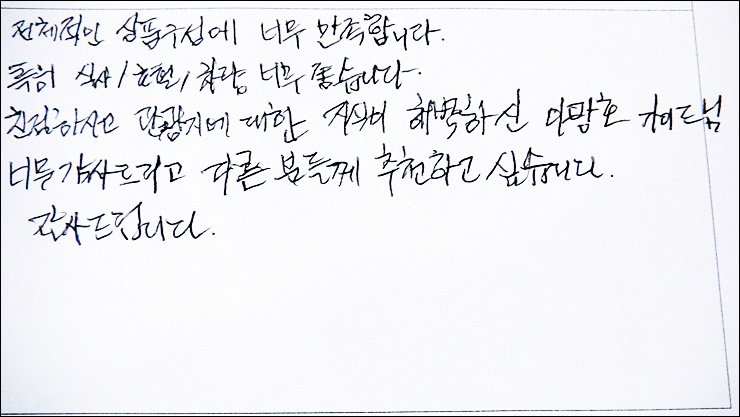 전체적인 상품구성에 너무 만족합니다.
특히 식사/호텔/차량 너무 좋습니다.
친절하시고 관광지에 대한 지식이 해박하신 이광호 가이드님
너무 감사드리고 다른 분들께 추천하고 싶습니다.
감사드립니다.